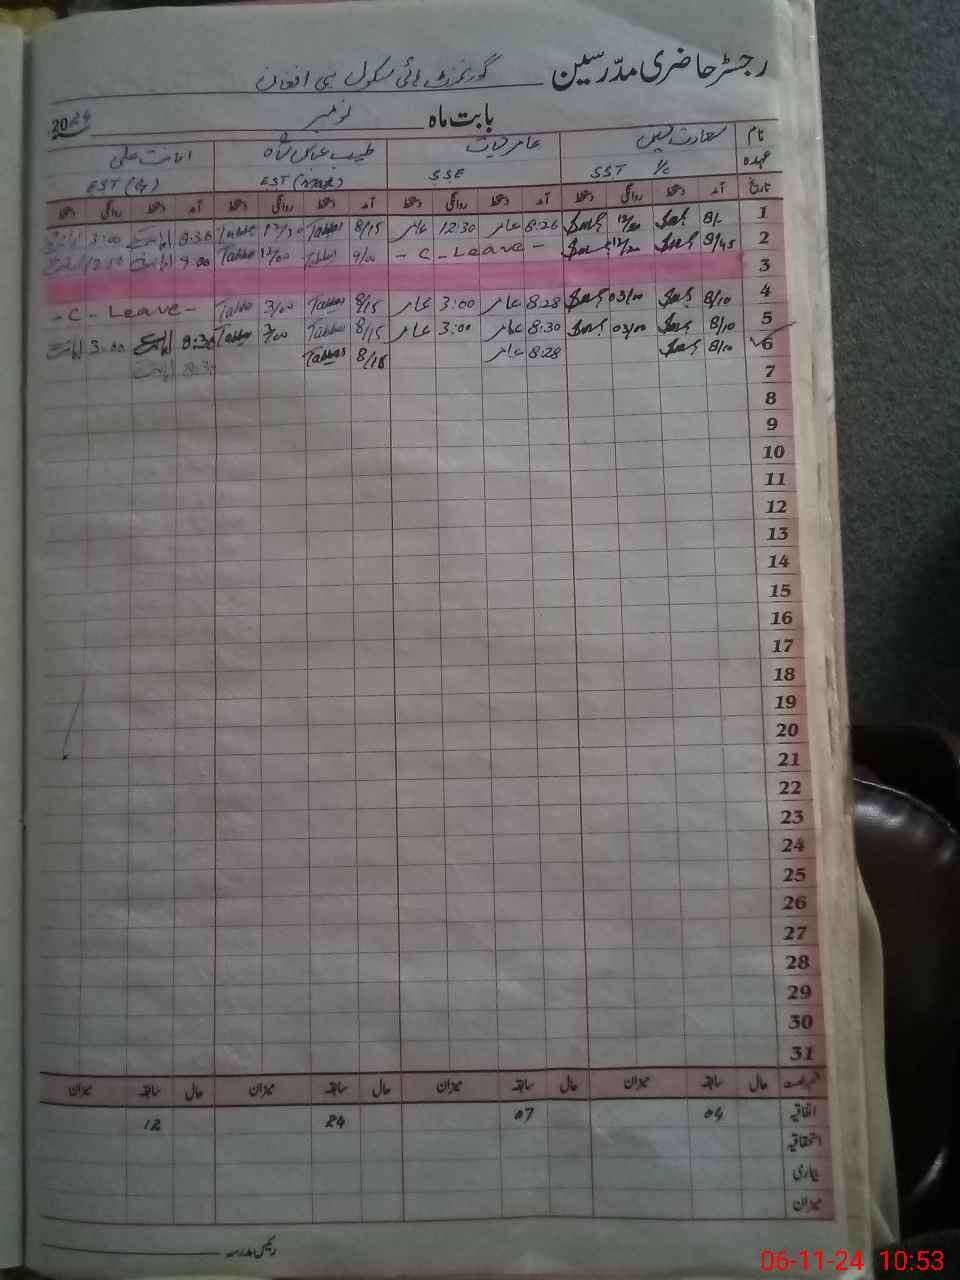 رجسٹر حاضری مدرسین گورنمنٹ ہائی سکول سی افغان
بابت ماہ نومبر 2024
نام سعادت حسین عامر حیات طیب عباس شاہ امانت علی
عہدہ SST I/c SSE EST (G)
تاریخ آمد دستخط روانگی دستخط آمد دستخط روانگی دستخط آمد دستخط روانگی دستخط آمد دستخط روانگی دستخط
1 8/ 12/30 8:26 عامر 12:30 عامر 8/15 12/30 8:30 3:00
2 8/45 12/20 - C - Leave - 9/00 12/00 9:00
3
4 8/10 03/00 8:28 عامر 3:00 عامر 8/15 3/00 - C - Leave -
5 8/10 03/00 8:30 عامر 3:00 عامر 8/15 3/00 8:30 3:00
6 8/10 8:28 عامر 8/15 8:30
7
8
9
10
11
12
13
14
15
16
17
18
19
20
21
22
23
24
25
26
27
28
29
30
31
قسم رخصت حال سابقہ میزان حال سابقہ میزان حال سابقہ میزان حال سابقہ میزان
اتفاقیہ 04 07 24 12
استحقاقیہ
بیماری
میزان
رئیس مدرسہ
06-11-24 10:53